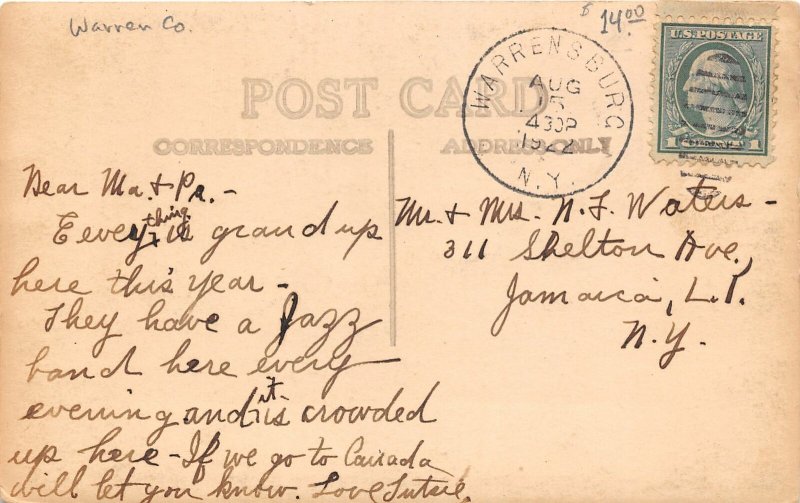 Warren Co.
$ 14.00
POST CARD
CORRESPONDENCE
ADDRESS ONLY
WARRENSBURG
AUG
5
430P
1922
N.Y.
U.S. POSTAGE
1 1
Dear Ma. & Pa. -
Eevery thing is grand up
here this year -
They have a Jazz
band here every
evening and it is crowded
up here - If we go to Canada
will let you know. Love
Mr. & Mrs. N. F. Waters -
311 Shelton Ave.,
Jamaica, L.I.
N.Y.